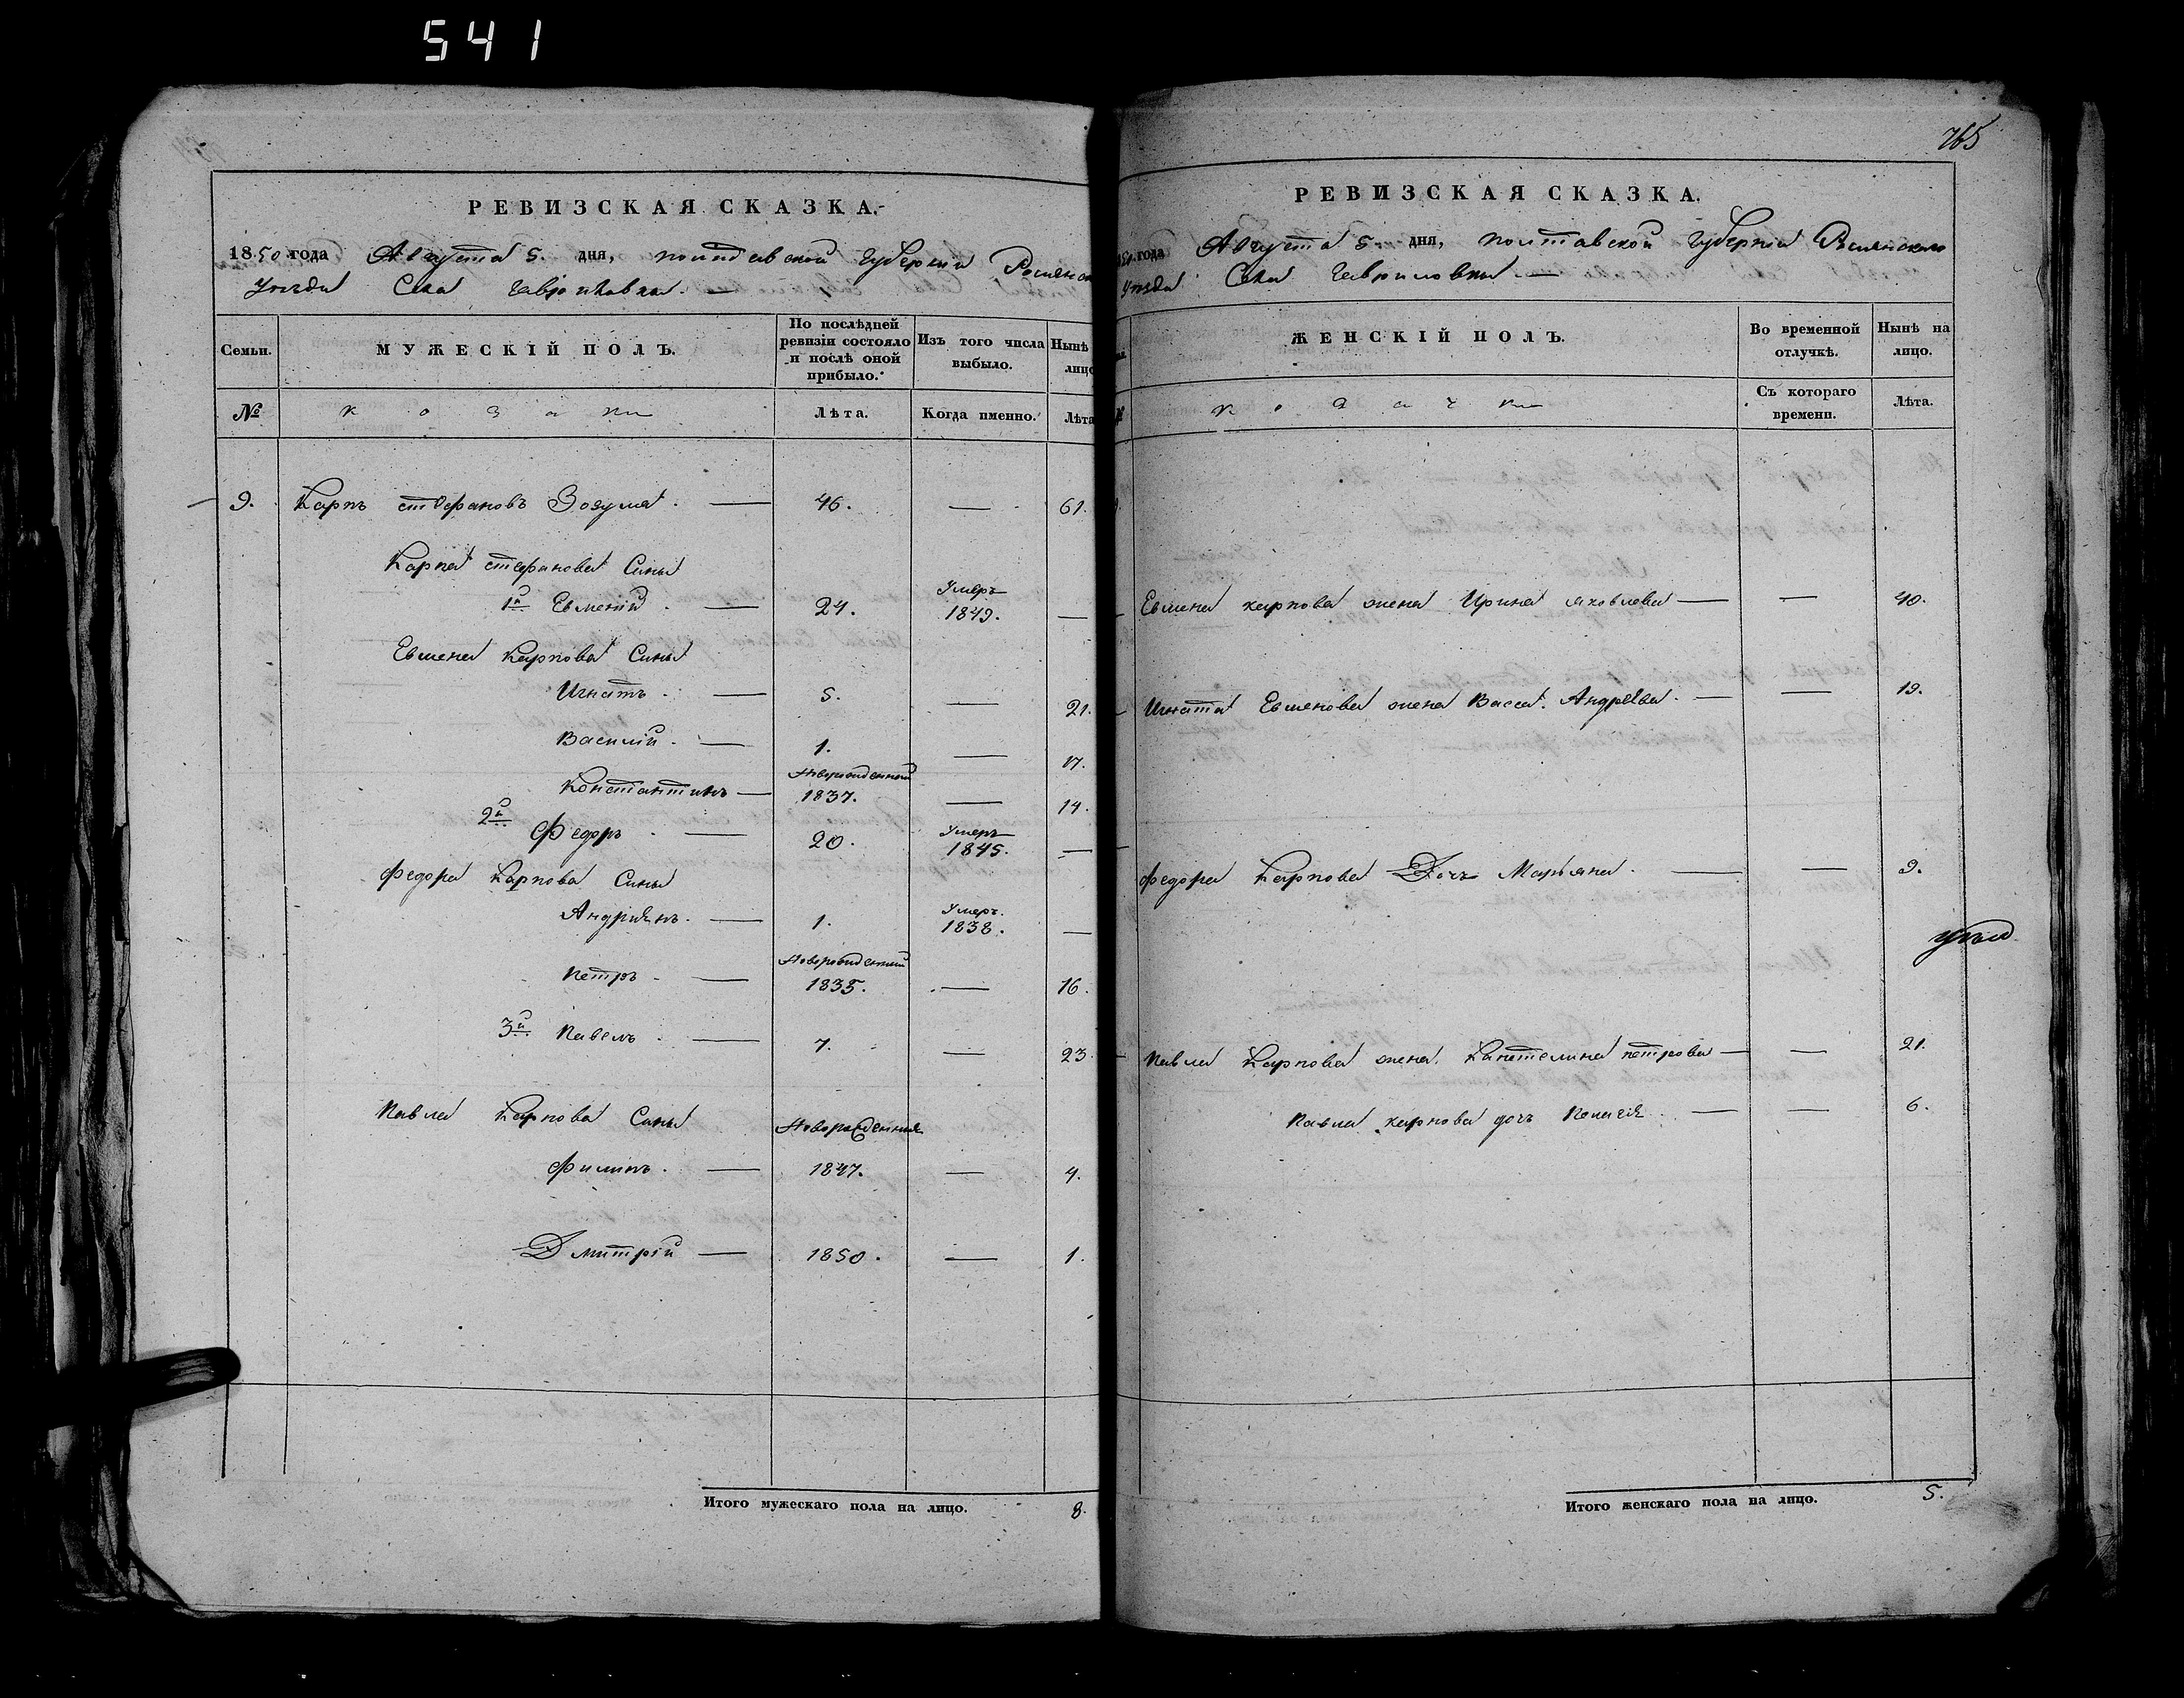 541
765
РЕВИЗСКАЯ СКАЗКА.
1850 года Августа 5. дня, Полтавской Губерніи Роменск
Уезда Села Гавриловки. —
Семьи. МУЖЕСКІЙ ПОЛЪ. По послѣдней ревизіи состояло и послѣ оной прибыло. Изъ того числа выбыло. Нынѣ лицо
№ Козаки Лѣта. Когда именно. Лѣта
9. Карпъ Стефановъ Зозуля. — 46. — 61.
Карпа Стефанова Сины
1й Евменій. — 24. Умеръ 1849. —
Евмена Карпова Сины
Игнатъ. — 5. — 21.
Василий. — 1. — 17.
Константинъ — Новорожденный 1837. — 14.
2й Федоръ. — 20. Умеръ 1845. —
Федора Карпова Сины
Андріянъ. — 1. Умеръ. 1838. —
Петръ. — Новорожденный 1835. — 16.
3й Павелъ. — 7. — 23.
Павла Карпова Сины Новорожденния
Филипъ. — 1847. — 4.
Дмитрій — 1850. — 1.
Итого мужескаго пола на лицо. 8.
РЕВИЗСКАЯ СКАЗКА.
года Августа 5. дня, Полтавской Губерніи Роменского
Уезда Села Гавриловки. —
ЖЕНСКІЙ ПОЛЪ. Во временной отлучкѣ. Нынѣ на лицо.
Козачки Съ котораго времени. Лѣта.
Евмена Карпова жена Ирина Яковлева — — 40.
Игната Евменова жена Васса. Андреева. — — 19.
Федора Карпова Дочъ Марьяна. — — 9.
Павла Карпова жена. Капетелина Петрова — — 21.
Павла Карпова дочъ Пелагія. — — 6.
Итого женскаго пола на лицо. 5.